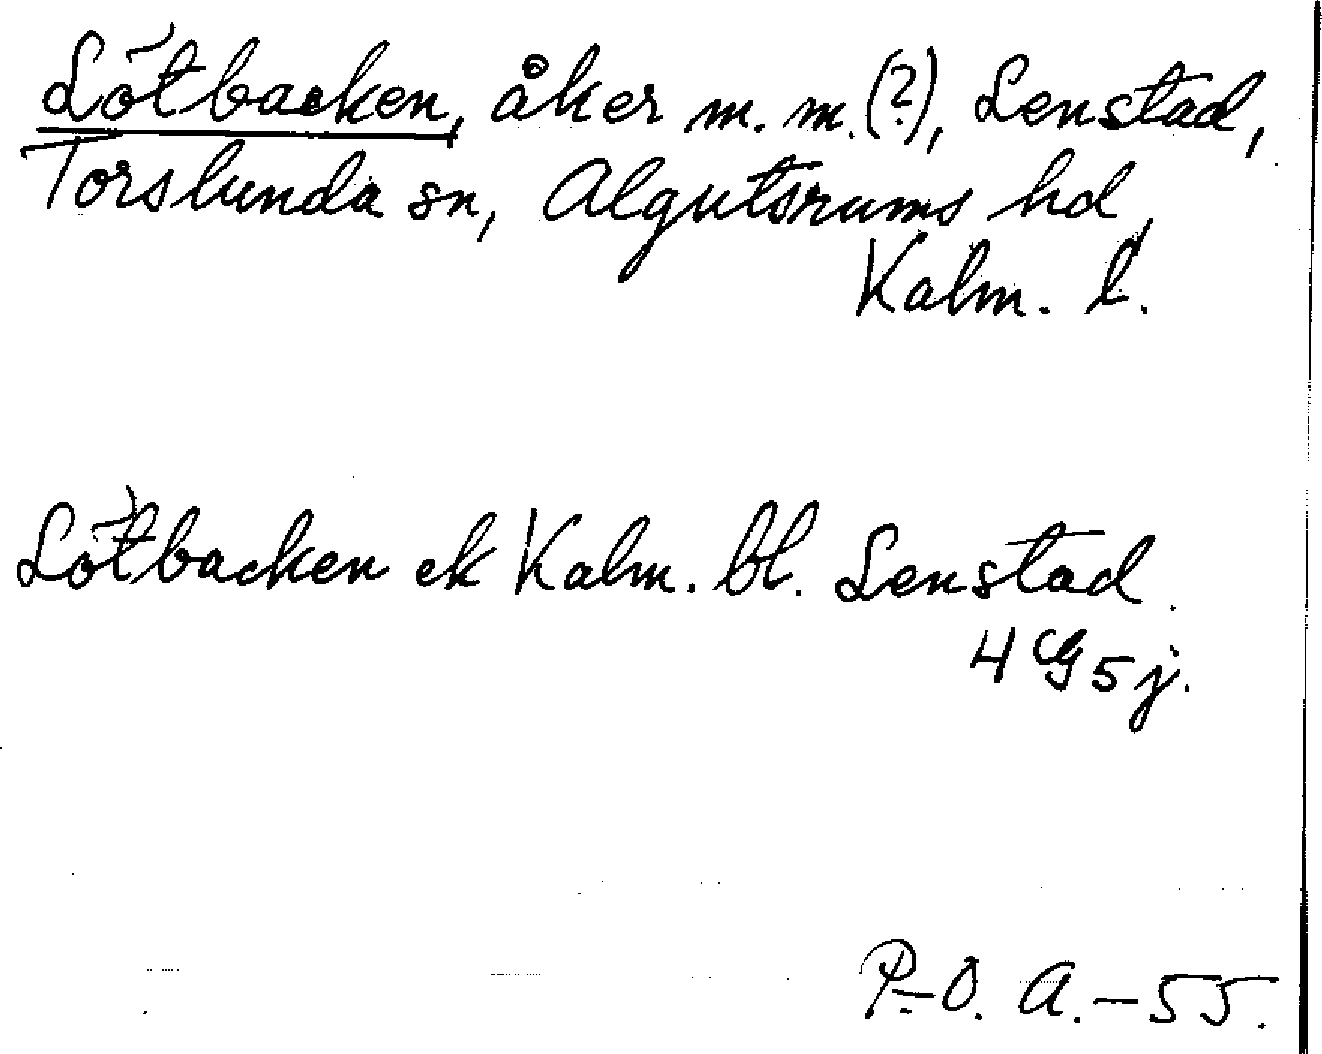 Lötbacken, åker m. m. (?), Lenstad,
Torslunda sn, Algutsrums hd,
Kalm. l.
Lötbacken ek Kalm. bl. Lenstad.
4 G 5 j.
P-O. A.-55.